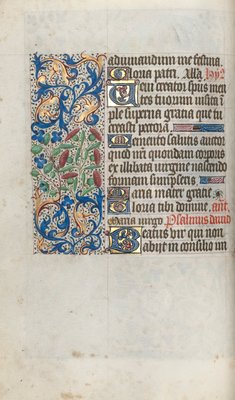 adiuuandum me festina.
Gloria patri. Alla. ymꝰ
Veni creator spūs men
tes tuorum visita ī
ple superna gratia que tu
creasti pectora.
Memento salutis auctor
quod nr̄i quondam corporis
ex illibata virgine nascendo
formam sumpseris
Maria mater gratie
Gloria tibi domine, ant.
Maria virgo Psalmus dauid
Beatus vir qui non
abijt in consilio im